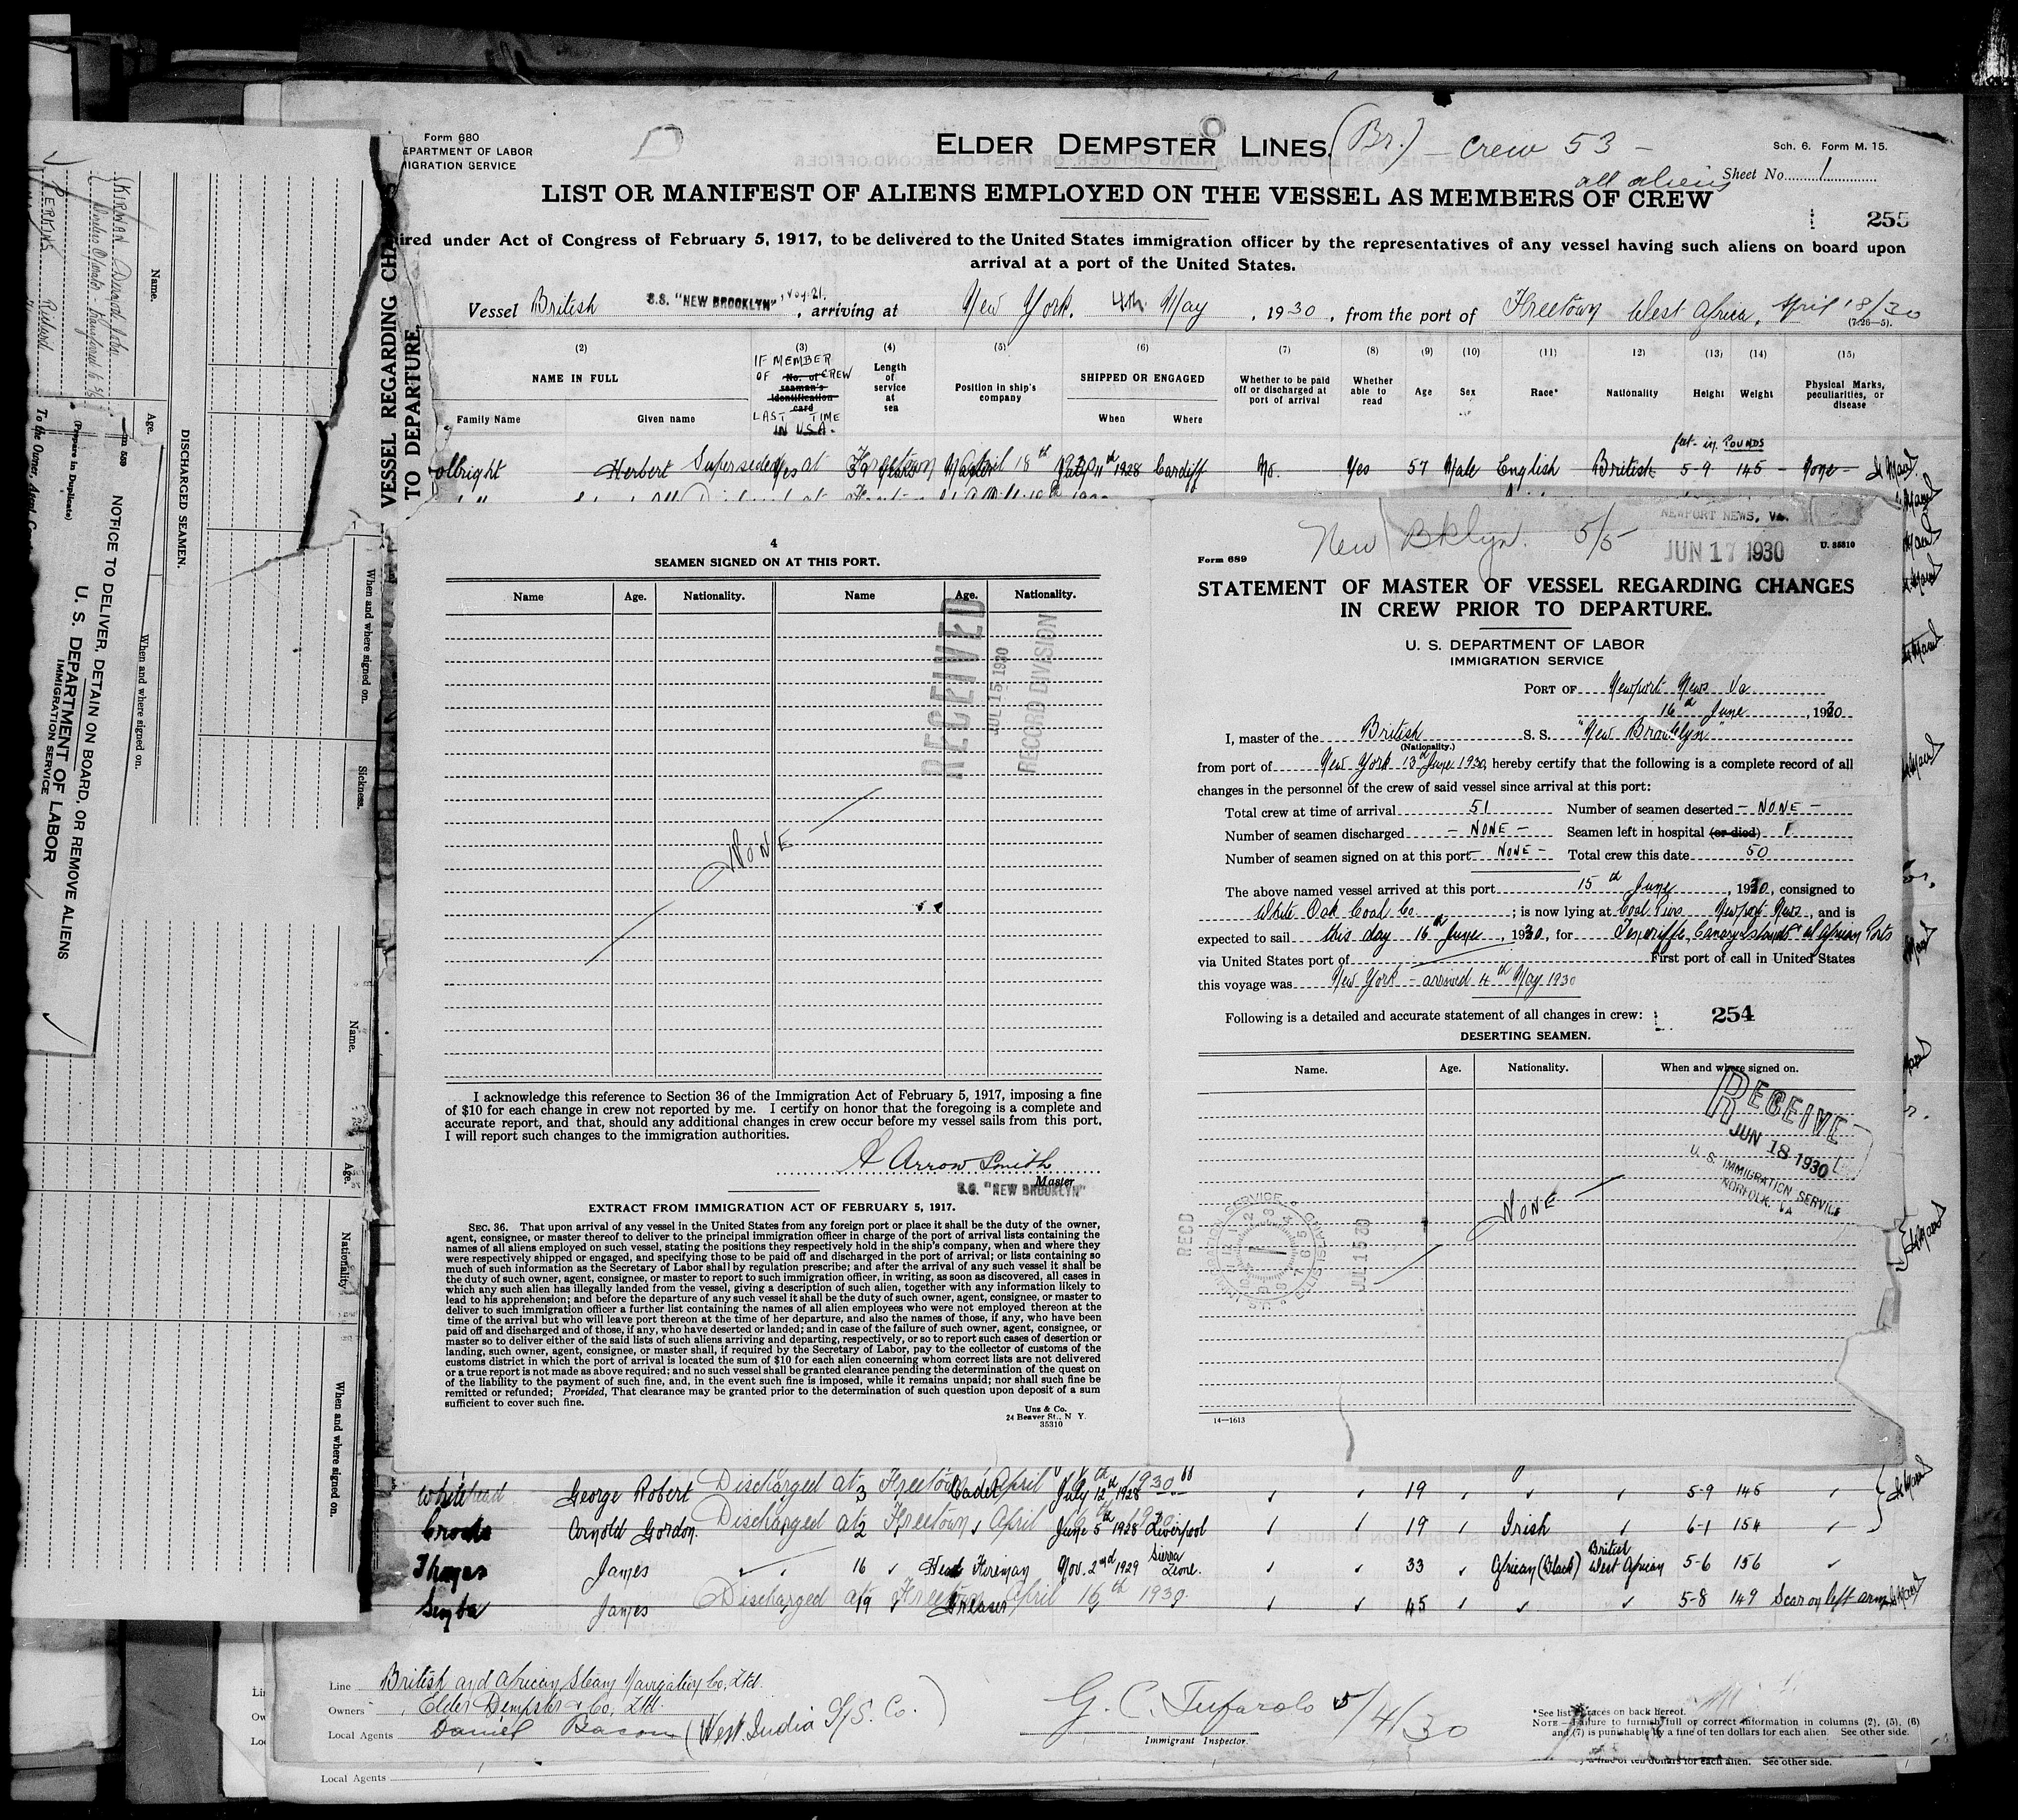 Form 680
EPARTMENT OF LABOR
MIGRATION SERVICE
ELDER DEMPSTER LINES (Br.) — Crew 53 —
all aliens
Sch. 6. Form M. 15.
Sheet No. 1
LIST OR MANIFEST OF ALIENS EMPLOYED ON THE VESSEL AS MEMBERS OF CREW
255
ired under Act of Congress of February 5, 1917, to be delivered to the United States immigration officer by the representatives of any vessel having such aliens on board upon
arrival at a port of the United States.
Vessel British S.S. "NEW BROOKLYN", Voy. 21. , arriving at New York. 4th May , 1930 , from the port of Freetown West Africa, April 18/30
(7-26—5).
(2) (3) (4) (5) (6) (7) (8) (9) (10) (11) 12) (13) (14) (15)
NAME IN FULL
Family Name Given name
IF MEMBER OF CREW LAST TIME IN U.S.A.
No. of seaman's identification card
Length of service at sea
Position in ship's company
SHIPPED OR ENGAGED
When Where
Whether to be paid off or discharged at port of arrival
Whether able to read
Age Sex Race* Nationality Height Weight
Physical Marks, peculiarities, or disease
feet - in. POUNDS
olbright Herbert Superseded at Freetown April 18th Yes 39 years Master 11th 1928 Cardiff No. Yes 57 Male English British 5-9 145 - None -
VESSEL REGARDING CH
TO DEPARTURE.
4
SEAMEN SIGNED ON AT THIS PORT.
Name Age. Nationality. Name Age. Nationality.
RECEIVED
JUL 15 1930
RECORD DIVISION
NONE
I acknowledge this reference to Section 36 of the Immigration Act of February 5, 1917, imposing a fine
of $10 for each change in crew not reported by me. I certify on honor that the foregoing is a complete and
accurate report, and that, should any additional changes in crew occur before my vessel sails from this port,
I will report such changes to the immigration authorities.
A Arrow Smith
Master
S.S. "NEW BROOKLYN"
EXTRACT FROM IMMIGRATION ACT OF FEBRUARY 5, 1917.
SEC. 36. That upon arrival of any vessel in the United States from any foreign port or place it shall be the duty of the owner,
agent, consignee, or master thereof to deliver to the principal immigration officer in charge of the port of arrival lists containing the
names of all aliens employed on such vessel, stating the positions they respectively hold in the ship's company, when and where they
were respectively shipped or engaged, and specifying those to be paid off and discharged in the port of arrival; or lists containing so
much of such information as the Secretary of Labor shall by regulation prescribe; and after the arrival of any such vessel it shall be
the duty of such owner, agent, consignee, or master to report to such immigration officer, in writing, as soon as discovered, all cases in
which any such alien has illegally landed from the vessel, giving a description of such alien, together with any information likely to
lead to his apprehension; and before the departure of any such vessel it shall be the duty of such owner, agent, consignee, or master to
deliver to such immigration officer a further list containing the names of all alien employees who were not employed thereon at the
time of the arrival but who will leave port thereon at the time of her departure, and also the names of those, if any, who have been
paid off and discharged and of those, if any, who have deserted or landed; and in case of the failure of such owner, agent, consignee, or
master so to deliver either of the said lists of such aliens arriving and departing, respectively, or so to report such cases of desertion or
landing, such owner, agent, consignee, or master shall, if required by the Secretary of Labor, pay to the collector of customs of the
customs district in which the port of arrival is located the sum of $10 for each alien concerning whom correct lists are not delivered
or a true report is not made as above required; and no such vessel shall be granted clearance pending the determination of the quest on
of the liability to the payment of such fine, and, in the event such fine is imposed, while it remains unpaid; nor shall such fine be
remitted or refunded; Provided, That clearance may be granted prior to the determination of such question upon deposit of a sum
sufficient to cover such fine.
Unz & Co.
24 Beaver St., N Y.
35310
New Bklyn. 5/5
NEWPORT NEWS, VA.
JUN 17 1930
U. 35310
Form 689
STATEMENT OF MASTER OF VESSEL REGARDING CHANGES
IN CREW PRIOR TO DEPARTURE.
U. S. DEPARTMENT OF LABOR
IMMIGRATION SERVICE
PORT OF Newport News Va
16th June , 1930
I, master of the British S. S. "New Brooklyn"
(Nationality.)
from port of New York 13th June 1930, hereby certify that the following is a complete record of all
changes in the personnel of the crew of said vessel since arrival at this port:
Total crew at time of arrival 51 Number of seamen deserted - NONE -
Number of seamen discharged - NONE - Seamen left in hospital (or died) 1
Number of seamen signed on at this port - NONE - Total crew this date 50
The above named vessel arrived at this port 15th June , 1930, consigned to
White Oak Coal Co ; is now lying at Coal Piers Newport News, and is
expected to sail this day 16th June , 1930, for Teneriffe, Canary Islands & W African Ports
via United States port of First port of call in United States
this voyage was New York - arrived 4th May 1930
Following is a detailed and accurate statement of all changes in crew: 254
DESERTING SEAMEN.
Name. Age. Nationality. When and where signed on.
RECEIVE
JUN 18 1930
U. S. IMMIGRATION SERVICE
NORFOLK, VA
NONE
RECD
JUL 15 30
14—1613
Whitehead George Robert Discharged at Freetown April th 1930 3 Cadet July 12th 1928 19 5-9 145
Arnold Gordon. Discharged at Freetown April 1930 2 June 5th 1928 Liverpool 19 Irish 6-1 154
Thomas James 16 Head Fireman Nov. 2nd 1929 Sierra Leone. 33 African (Black) British West African 5-6 156
James Discharged at Freetown April 16th 1930. 19 Greaser 45 5-8 149 Scar on left arm
Line British and African Steam Navigation Co, Ltd.
Owners Elder Dempster & Co, Ltd.
Local Agents Daniel Bacon (West India S/S. Co.)
G. C. Tufarolo 5/4/30
Immigrant Inspector.
*See list of races on back hereof.
NOTE — Failure to furnish full or correct information in columns (2), (5), (6)
and (7) is punishable by a fine of ten dollars for each alien. See other side.
a fine of ten dollars for each alien. See other side.
Local Agents
KIRMAN Desmond John
PERKINS Richard
Name. Age. When and where signed on.
DISCHARGED SEAMEN.
When and where signed on. Sickness.
Name. Age. Nationality. When and where signed on.
To the Owner, Agent,
(Prepare in Duplicate)
NOTICE TO DELIVER, DETAIN ON BOARD, OR REMOVE ALIENS
U. S. DEPARTMENT OF LABOR
IMMIGRATION SERVICE